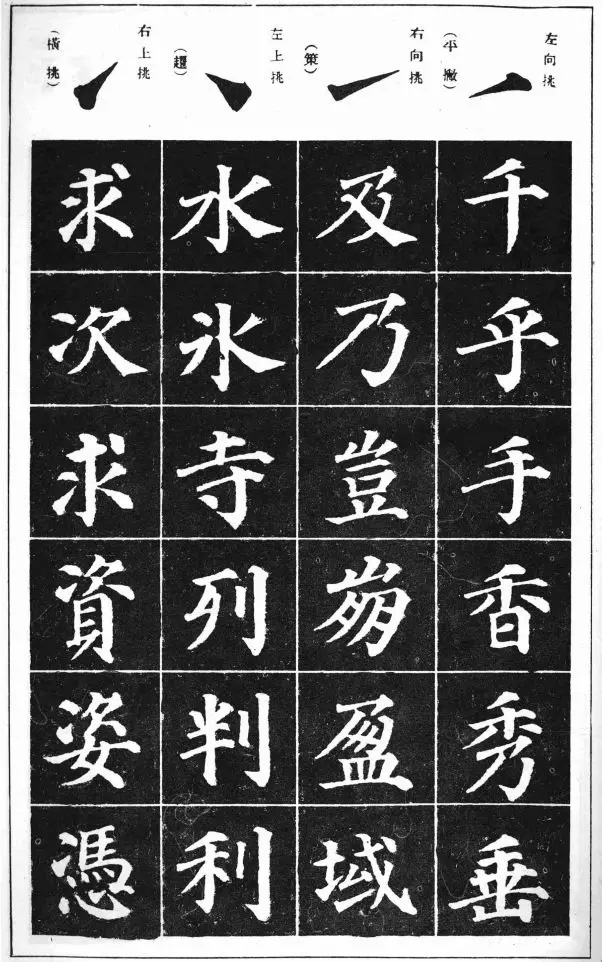 左向挑
（平撇）
千乎手香秀垂
右向挑
（策）
及乃豈崩盈域
左上挑
（趯）
水氷寺列判利
右上挑
（橫挑）
求次求資姿憑